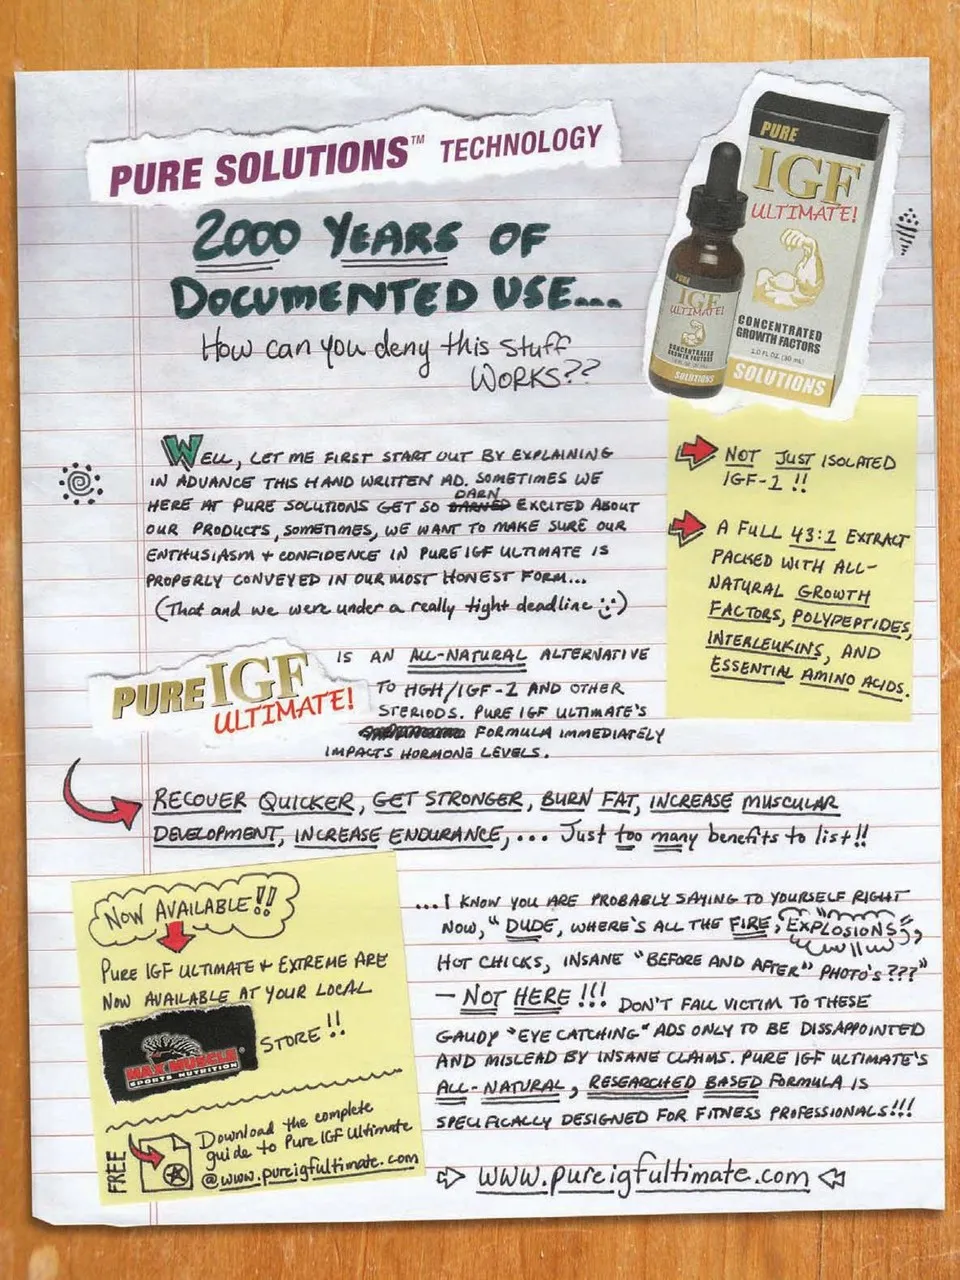 PURE SOLUTIONS™ TECHNOLOGY
2000 YEARS OF
DOCUMENTED USE...
How can you deny this stuff
WORKS??
PURE
IGF
ULTIMATE!
CONCENTRATED
GROWTH FACTORS
1.0 FL OZ. (30 mL)
SOLUTIONS
PURE
IGF
ULTIMATE!
CONCENTRATED
GROWTH FACTORS
SOLUTIONS
NOT JUST ISOLATED
IGF-1 !!
A FULL 43:1 EXTRACT
PACKED WITH ALL-
NATURAL GROWTH
FACTORS, POLYPEPTIDES,
INTERLEUKINS, AND
ESSENTIAL AMINO ACIDS.
WELL, LET ME FIRST START OUT BY EXPLAINING
IN ADVANCE THIS HAND WRITTEN AD. SOMETIMES WE
HERE AT PURE SOLUTIONS GET SO DARN DARNED EXCITED ABOUT
OUR PRODUCTS, SOMETIMES, WE WANT TO MAKE SURE OUR
ENTHUSIASM + CONFIDENCE IN PURE IGF ULTIMATE IS
PROPERLY CONVEYED IN OUR MOST HONEST FORM...
(That and we were under a really tight deadline :))
PURE IGF
ULTIMATE!
IS AN ALL-NATURAL ALTERNATIVE
TO HGH/IGF-1 AND OTHER
STERIODS. PURE IGF ULTIMATE'S
FORMULA IMMEDIATELY
IMPACTS HORMONE LEVELS.
RECOVER QUICKER, GET STRONGER, BURN FAT, INCREASE MUSCULAR
DEVELOPMENT, INCREASE ENDURANCE,... Just too many benefits to list!!
NOW AVAILABLE!!
PURE IGF ULTIMATE + EXTREME ARE
NOW AVAILABLE AT YOUR LOCAL
MAX MUSCLE®
SPORTS NUTRITION
STORE!!
FREE
Download the complete
guide to Pure IGF Ultimate
@www.pureigfultimate.com
...I KNOW YOU ARE PROBABLY SAYING TO YOURSELF RIGHT
NOW, "DUDE, WHERE'S ALL THE FIRE, EXPLOSIONS,
HOT CHICKS, INSANE "BEFORE AND AFTER" PHOTO'S???"
— NOT HERE!!! DON'T FALL VICTIM TO THESE
GAUDY "EYE CATCHING" ADS ONLY TO BE DISSAPOINTED
AND MISLEAD BY INSANE CLAIMS. PURE IGF ULTIMATE'S
ALL-NATURAL, RESEARCHED BASED FORMULA IS
SPECIFICALLY DESIGNED FOR FITNESS PROFESSIONALS!!!
www.pureigfultimate.com